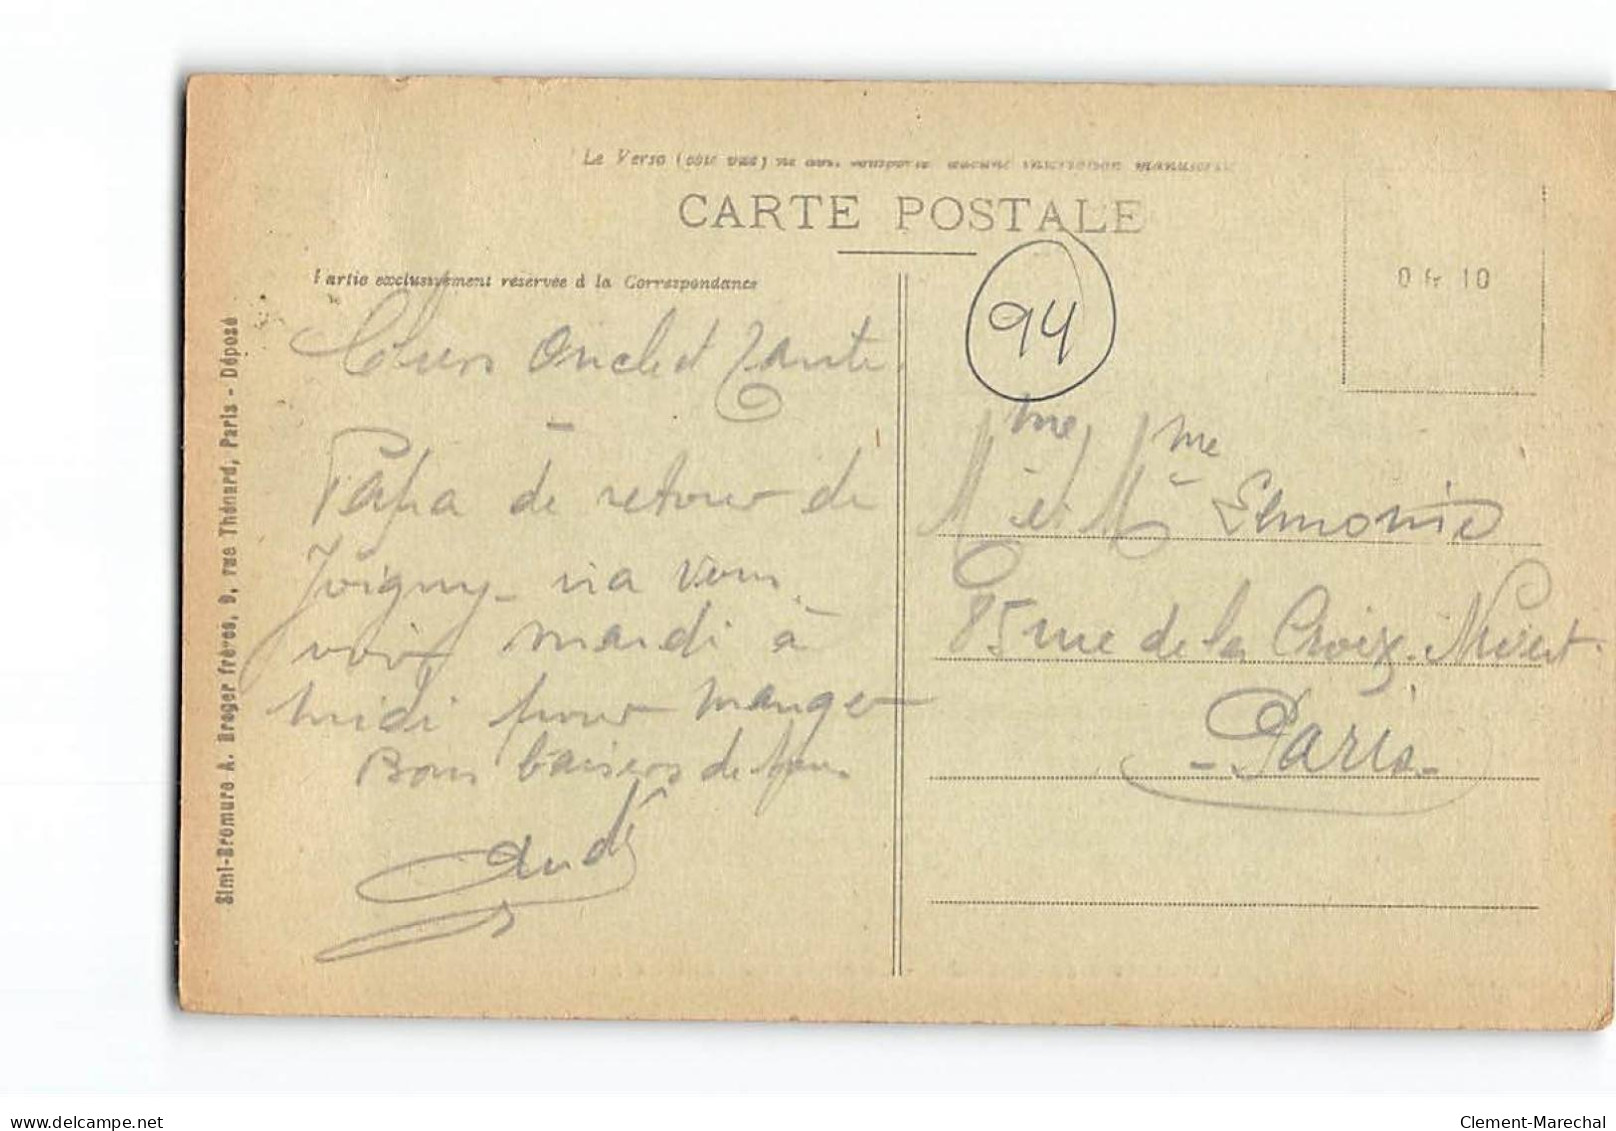 Le Verso (côté vue) ne aucune inscription manuscrite
CARTE POSTALE
Partie exclusivement réservée à la Correspondance
0 fr 10
94
Simi-Bromure A. Breger frères, 9, rue Thénard, Paris - Déposé
Chers Oncle et Tante
Papa de retour de
Joigny - ira vous
voir mardi à
midi pour manger
Bons baisers de tous
André
Mme et Mme
85 rue de la Croix-Nivert
- Paris -
www.delcampe.net
Clement-Marechal